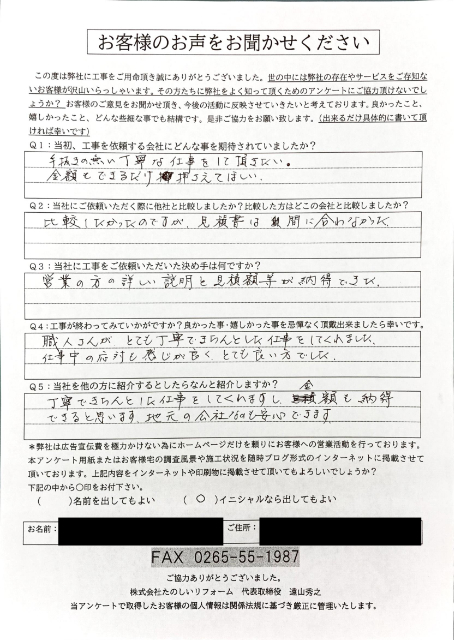 お客様のお声をお聞かせください
この度は弊社に工事をご用命頂き誠にありがとうございました。世の中には弊社の存在やサービスをご存知な
いお客様が沢山いらっしゃいます。その方たちに弊社をよく知って頂くためのアンケートにご協力頂けないでし
ょうか？お客様のご意見をお聞かせ頂き、今後の活動に反映させていきたいと考えております。良かったこと、
嬉しかったこと、どんな些細な事でも結構です。是非ご協力をお願い致します。(出来るだけ具体的に書いて頂
ければ幸いです)
Q1：当初、工事を依頼する会社にどんな事を期待されていましたか？
手抜きの無い丁寧な仕事をして頂きたい。
金額もできるだけ押さえてほしい。
Q2：当社にご依頼いただく際に他社と比較しましたか？比較した方はどこの会社と比較しましたか？
比較したかったのですが、見積書は間に合わなかった。
Q3：当社に工事をご依頼いただいた決め手は何ですか？
営業の方の詳しい説明と見積額等が納得できた。
Q4：工事が終わってみていかがですか？良かった事・嬉しかった事を忌憚なく頂戴出来ましたら幸いです。
職人さんが、とても丁寧できちんとした仕事をしてくれました。
仕事中の応対も感じが良く とても良い方でした。
Q5：当社を他の方に紹介するとしたらなんと紹介しますか？
丁寧できちんとした仕事をしてくれますし、金額も納得
できると思います。地元の会社なので安心できます。
＊弊社は広告宣伝費を極力かけない為にホームページだけを頼りにお客様への営業活動を行っております。
本アンケート用紙またはお客様宅の調査風景や施工状況を随時ブログ形式のインターネットに掲載させて
頂いております。上記内容をインターネットや印刷物に掲載させて頂いてもよろしいでしょうか？
下記の中から〇印をお付下さい。
(　　)名前を出してもよい　(　〇　)イニシャルなら出してもよい
お名前：　ご住所：
FAX 0265-55-1987
ご協力ありがとうございました。
株式会社たのしいリフォーム　代表取締役　遠山秀之
当アンケートで取得したお客様の個人情報は関係法規に基づき厳正に管理いたします。